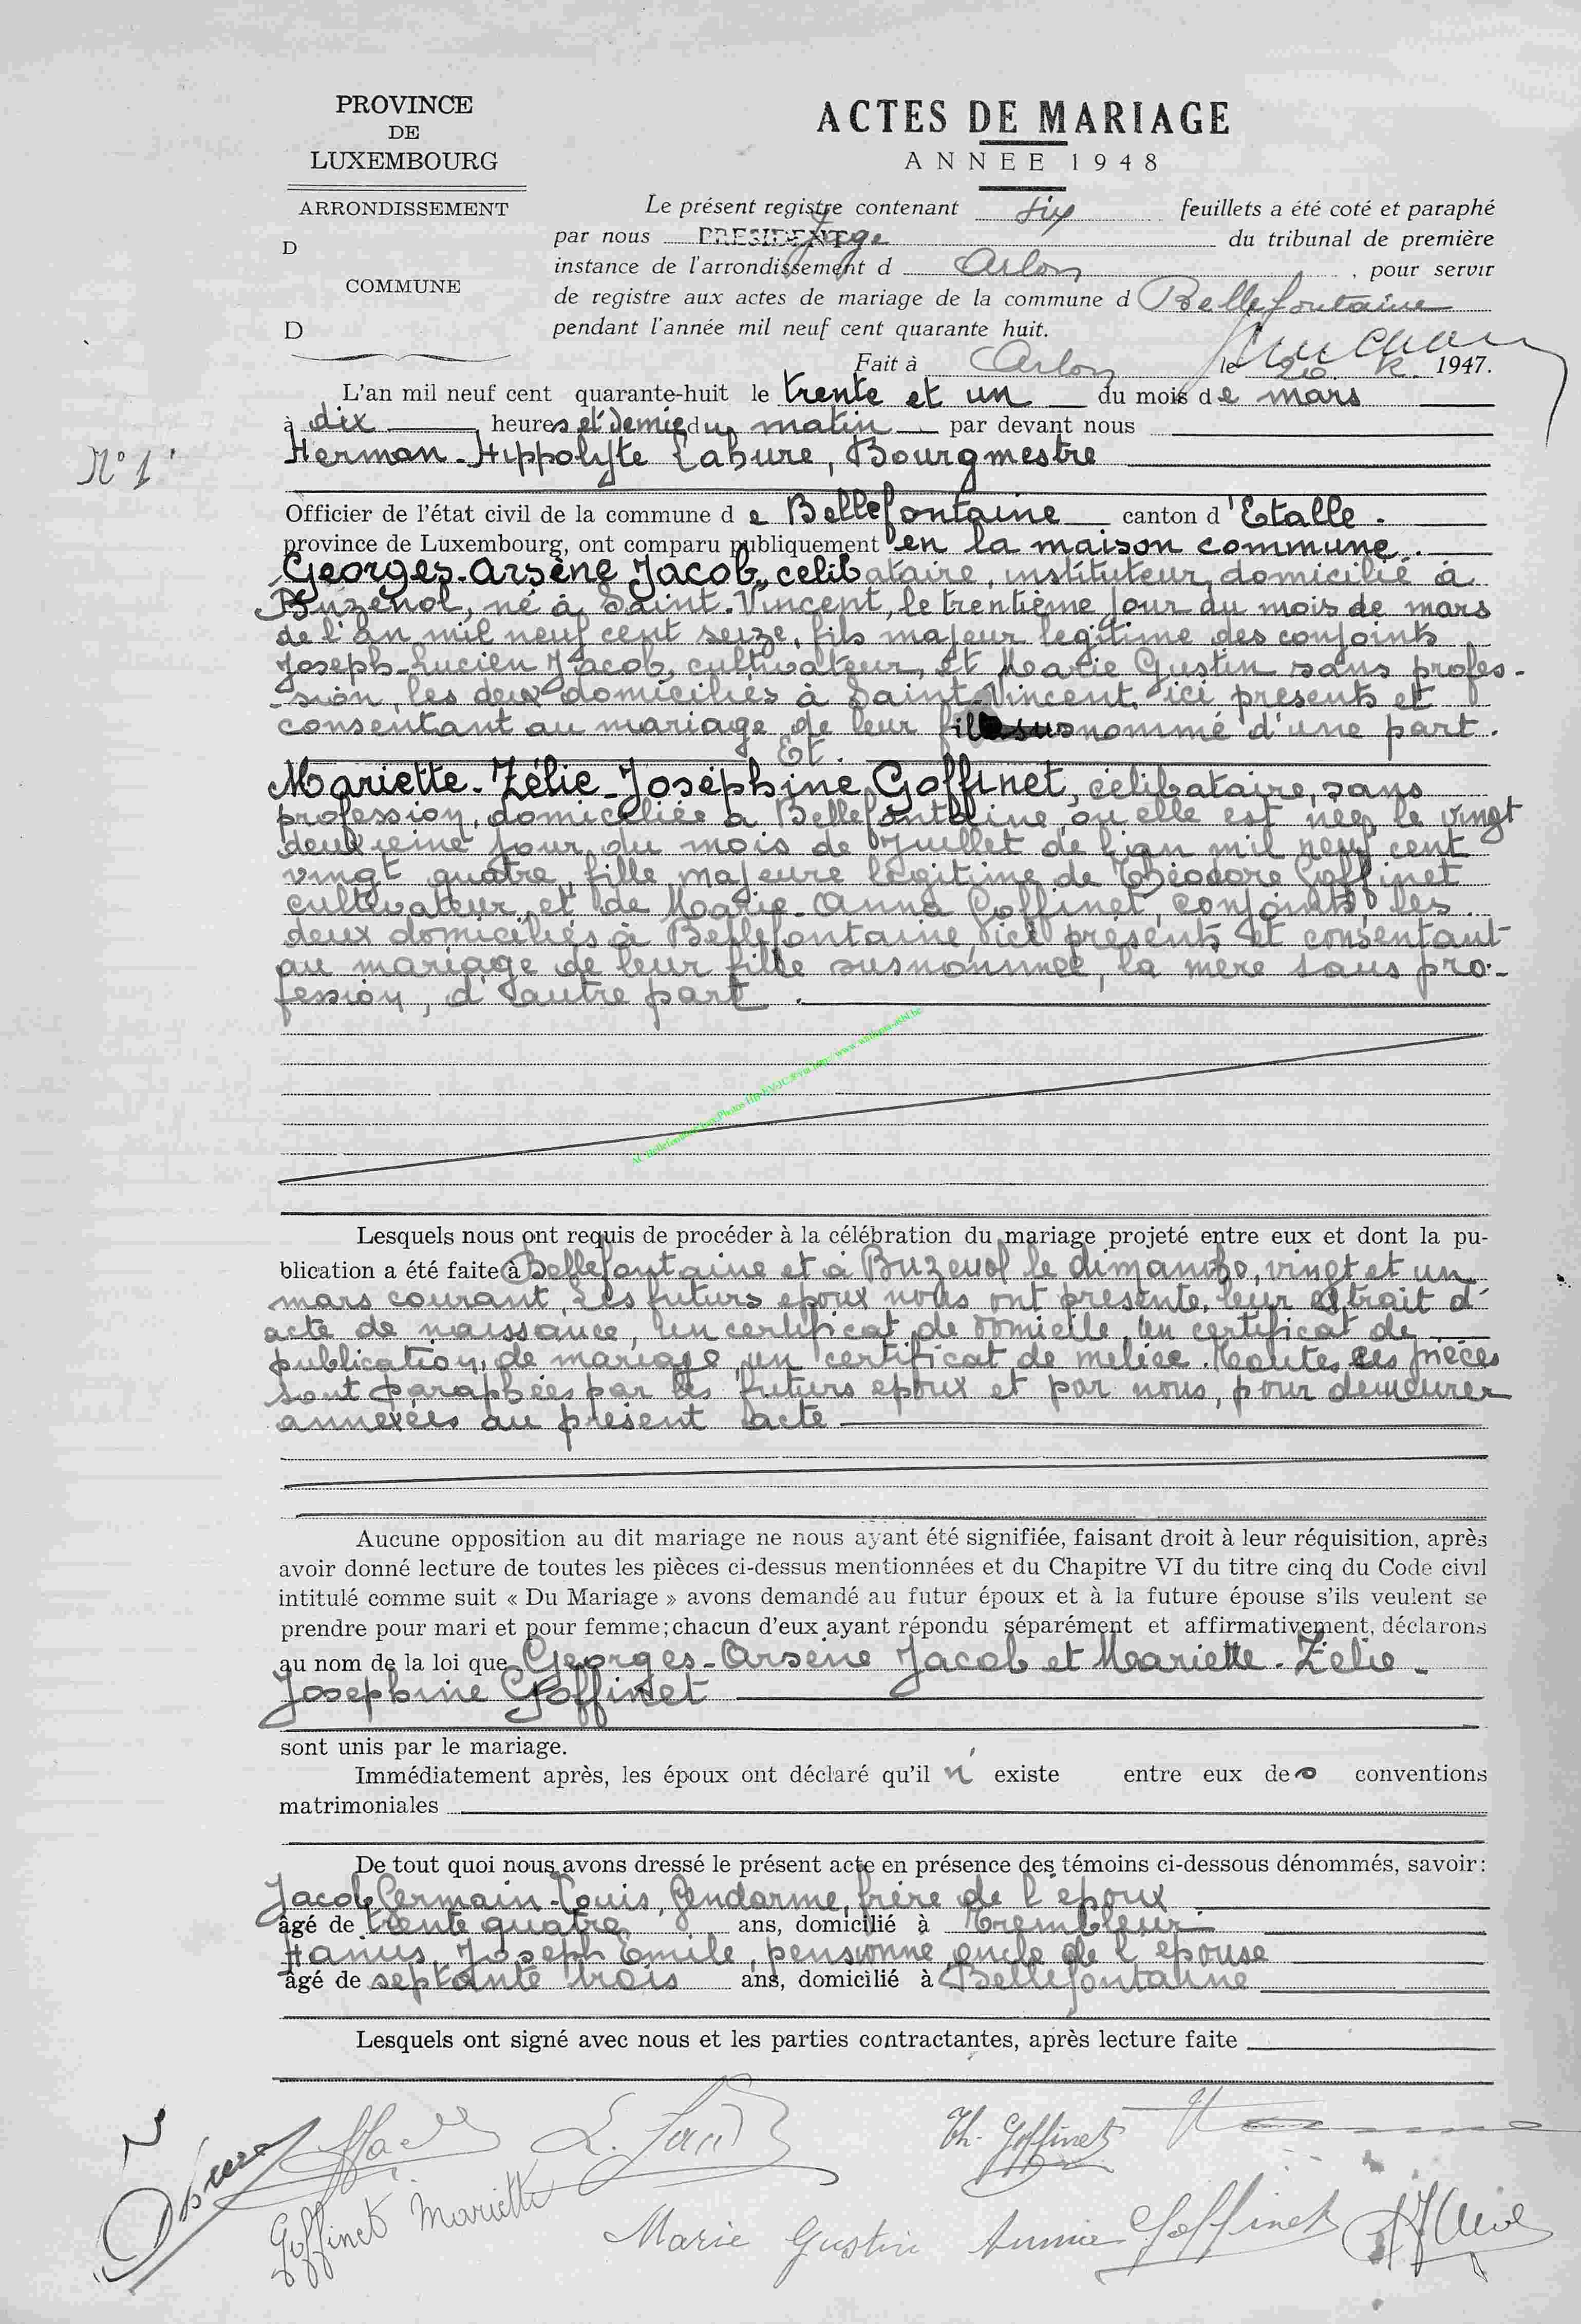 PROVINCE
DE
LUXEMBOURG
ARRONDISSEMENT
D
COMMUNE
D
ACTES DE MARIAGE
ANNEE 1948
Le présent registre contenant six feuillets a été coté et paraphé
par nous PRESIDENT Juge du tribunal de première
instance de l'arrondissement d Arlon, pour servir
de registre aux actes de mariage de la commune d Bellefontaine
pendant l'année mil neuf cent quarante huit.
Fait à Arlon le 20 1947.
L'an mil neuf cent quarante-huit le trente et un du mois de mars
à dix heures et demie du matin par devant nous
N° 1
Herman-Hippolyte Labure, Bourgmestre
Officier de l'état civil de la commune de Bellefontaine canton d'Etalle.
province de Luxembourg, ont comparu publiquement en la maison commune.
Georges-Arsène Jacob, celibataire, instituteur, domicilié à
Buzenol, né à Saint-Vincent, le trentième jour du mois de mars
de l'an mil neuf cent seize, fils majeur legitime des conjoints
Joseph-Lucien Jacob, cultivateur, et Marie Gustin sans profes-
-sion, les deux domiciliés à Saint-Vincent, ici présents et
consentant au mariage de leur fils susnommé d'une part.
Et
Mariette-Zélie-Joséphine Goffinet, célibataire, sans
profession, domiciliée à Bellefontaine, où elle est née, le vingt
deuxième jour du mois de Juillet de l'an mil neuf cent
vingt quatre, fille majeure légitime de Théodore Goffinet
cultivateur, et de Marie-Anna Goffinet, conjoints, les
deux domiciliés à Bellefontaine, ici présents et consentant
au mariage de leur fille susnommée, la mère sans pro-
fession, d'autre part.
Lesquels nous ont requis de procéder à la célébration du mariage projeté entre eux et dont la pu-
blication a été faite à Bellefontaine et à Buzenol le dimanche, vingt et un
mars courant, Les futurs epoux nous ont présenté, leur extrait d'
acte de naissance, un certificat de domicile, un certificat de
publication, de mariage, un certificat de milice. Toutes ces pièces
sont paraphées par les futurs epoux et par nous, pour demeurer
annexées au présent acte
Aucune opposition au dit mariage ne nous ayant été signifiée, faisant droit à leur réquisition, après
avoir donné lecture de toutes les pièces ci-dessus mentionnées et du Chapitre VI du titre cinq du Code civil
intitulé comme suit « Du Mariage » avons demandé au futur époux et à la future épouse s'ils veulent se
prendre pour mari et pour femme; chacun d'eux ayant répondu séparément et affirmativement, déclarons
au nom de la loi que Georges-Arsène Jacob et Mariette-Zélie-
Josephine Goffinet
sont unis par le mariage.
Immédiatement après, les époux ont déclaré qu'il n' existe entre eux de conventions
matrimoniales
De tout quoi nous avons dressé le présent acte en présence des témoins ci-dessous dénommés, savoir:
Jacob Germain-Louis, Gendarme, frère de l'epoux
âgé de trente quatre ans, domicilié à Trembleur
Hanus Joseph Emile, pensionné, oncle de l'epouse
âgé de septante trois ans, domicilié à Bellefontaine
Lesquels ont signé avec nous et les parties contractantes, après lecture faite
Th. Goffinet
Goffinet Mariette
Marie Gustin Anna Goffinet